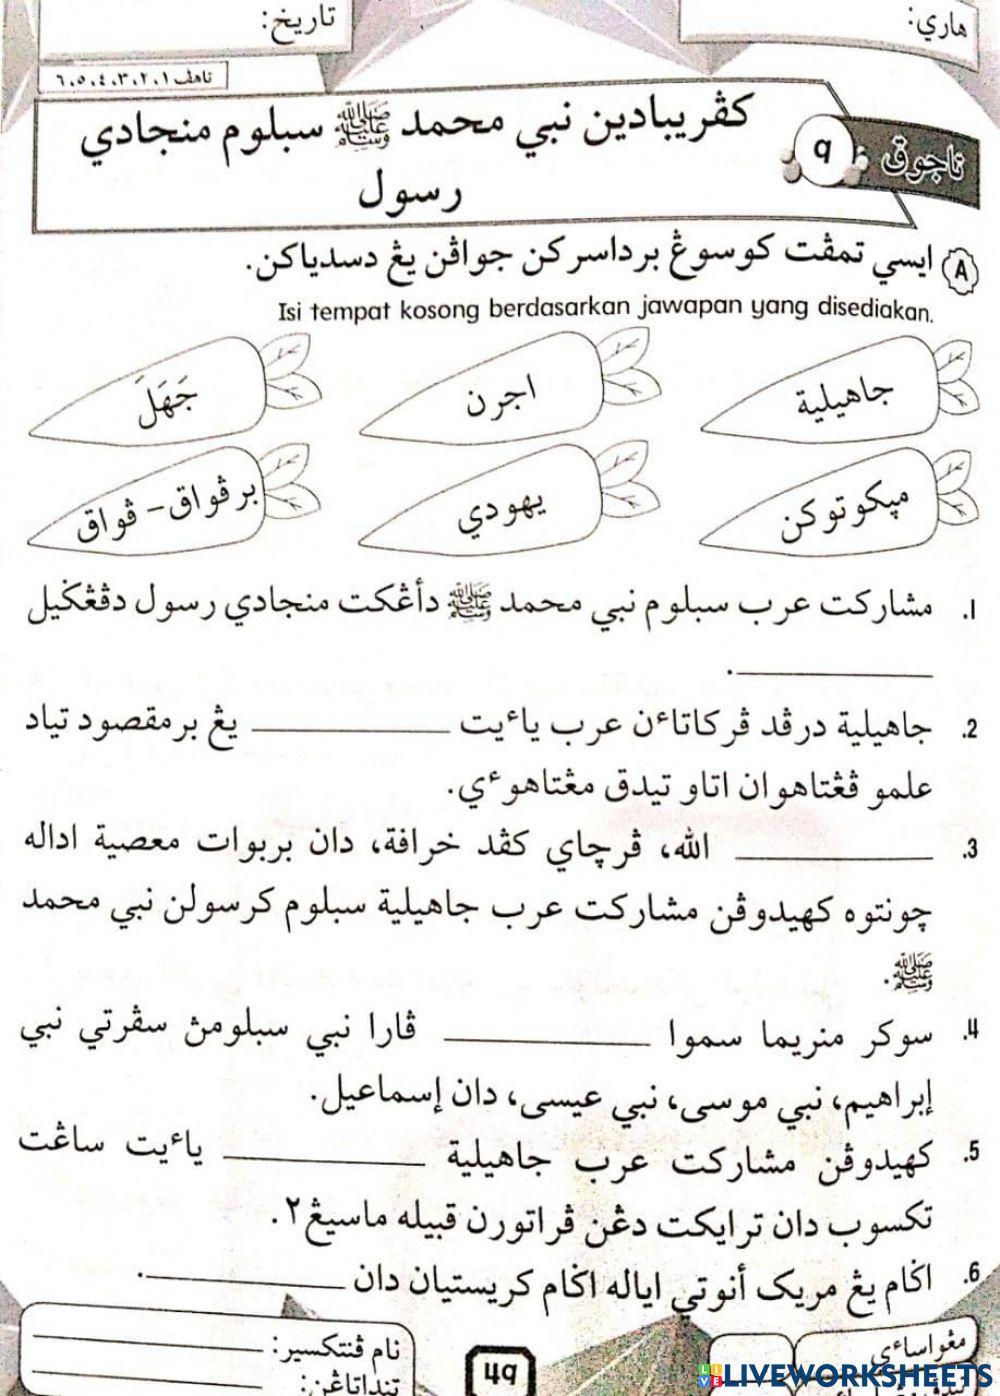 هاري:
تاريخ:
تاهڤ ١، ٢، ٣، ٤، ٥، ٦
تاجوق ٩
كڤريبادين نبي محمد ﷺ سبلوم منجادي
رسول
A ايسي تمڤت كوسوڠ برداسركن جواڤن يڠ دسدياكن.
Isi tempat kosong berdasarkan jawapan yang disediakan.
جاهيلية
اجرن
جَهَلَ
مڽكوتوكن
يهودي
برڤواق - ڤواق
1. مشاركت عرب سبلوم نبي محمد ﷺ دأڠكت منجادي رسول دڤڠݢيل
.
2. جاهيلية درڤد ڤركاتاءن عرب ياءيت يڠ برمقصود تياد
علمو ڤڠتاهوان اتاو تيدق مڠتاهوءي.
3. الله، ڤرچاي كڤد خرافة، دان بربوات معصية اداله
چونتوه كهيدوڤن مشاركت عرب جاهيلية سبلوم كرسولن نبي محمد
ﷺ.
4. سوكر منريما سموا ڤارا نبي سبلومڽ سڤرتي نبي
إبراهيم، نبي موسى، نبي عيسى، دان إسماعيل.
5. كهيدوڤن مشاركت عرب جاهيلية ياءيت ساڠت
تكسوب دان ترايكت دڠن ڤراتورن قبيله ماسيڠ٢.
6. اݢام يڠ مريک أنوتي اياله اݢام كريستيان دان .
مڠواساءي
49
نام ڤنتكسير:
تنداتاڠن:
LIVEWORKSHEETS